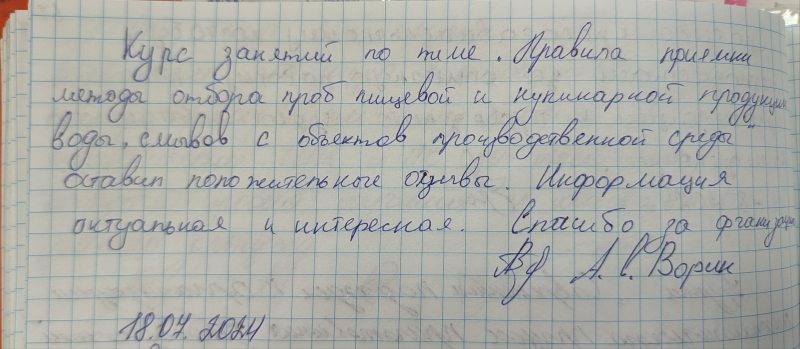 Курс занятий по теме. Правила приемки
методы отбора проб пищевой и кулинарной продукции
воды, смывов с объектов производственной среды"
оставил положительные отзывы. Информация
актуальная и интересная. Спасибо за
А. С. Ворин
18.07.2024